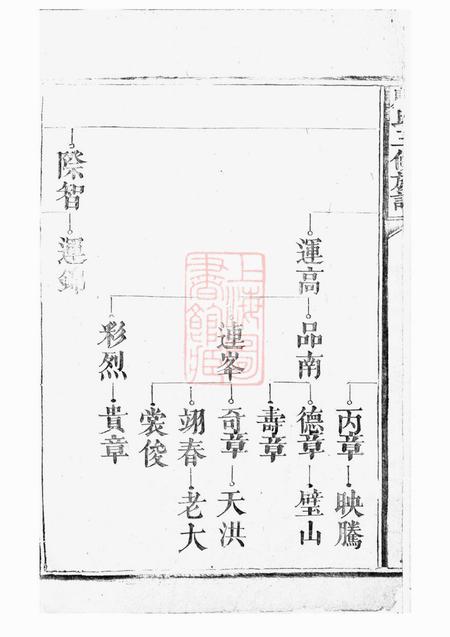 運高
品南
丙章
映騰
德章
璧山
壽章
連峯
奇章
天洪
翊春
老大
裳俊
彩烈
貴章
際智
運錦
上海圖書館藏